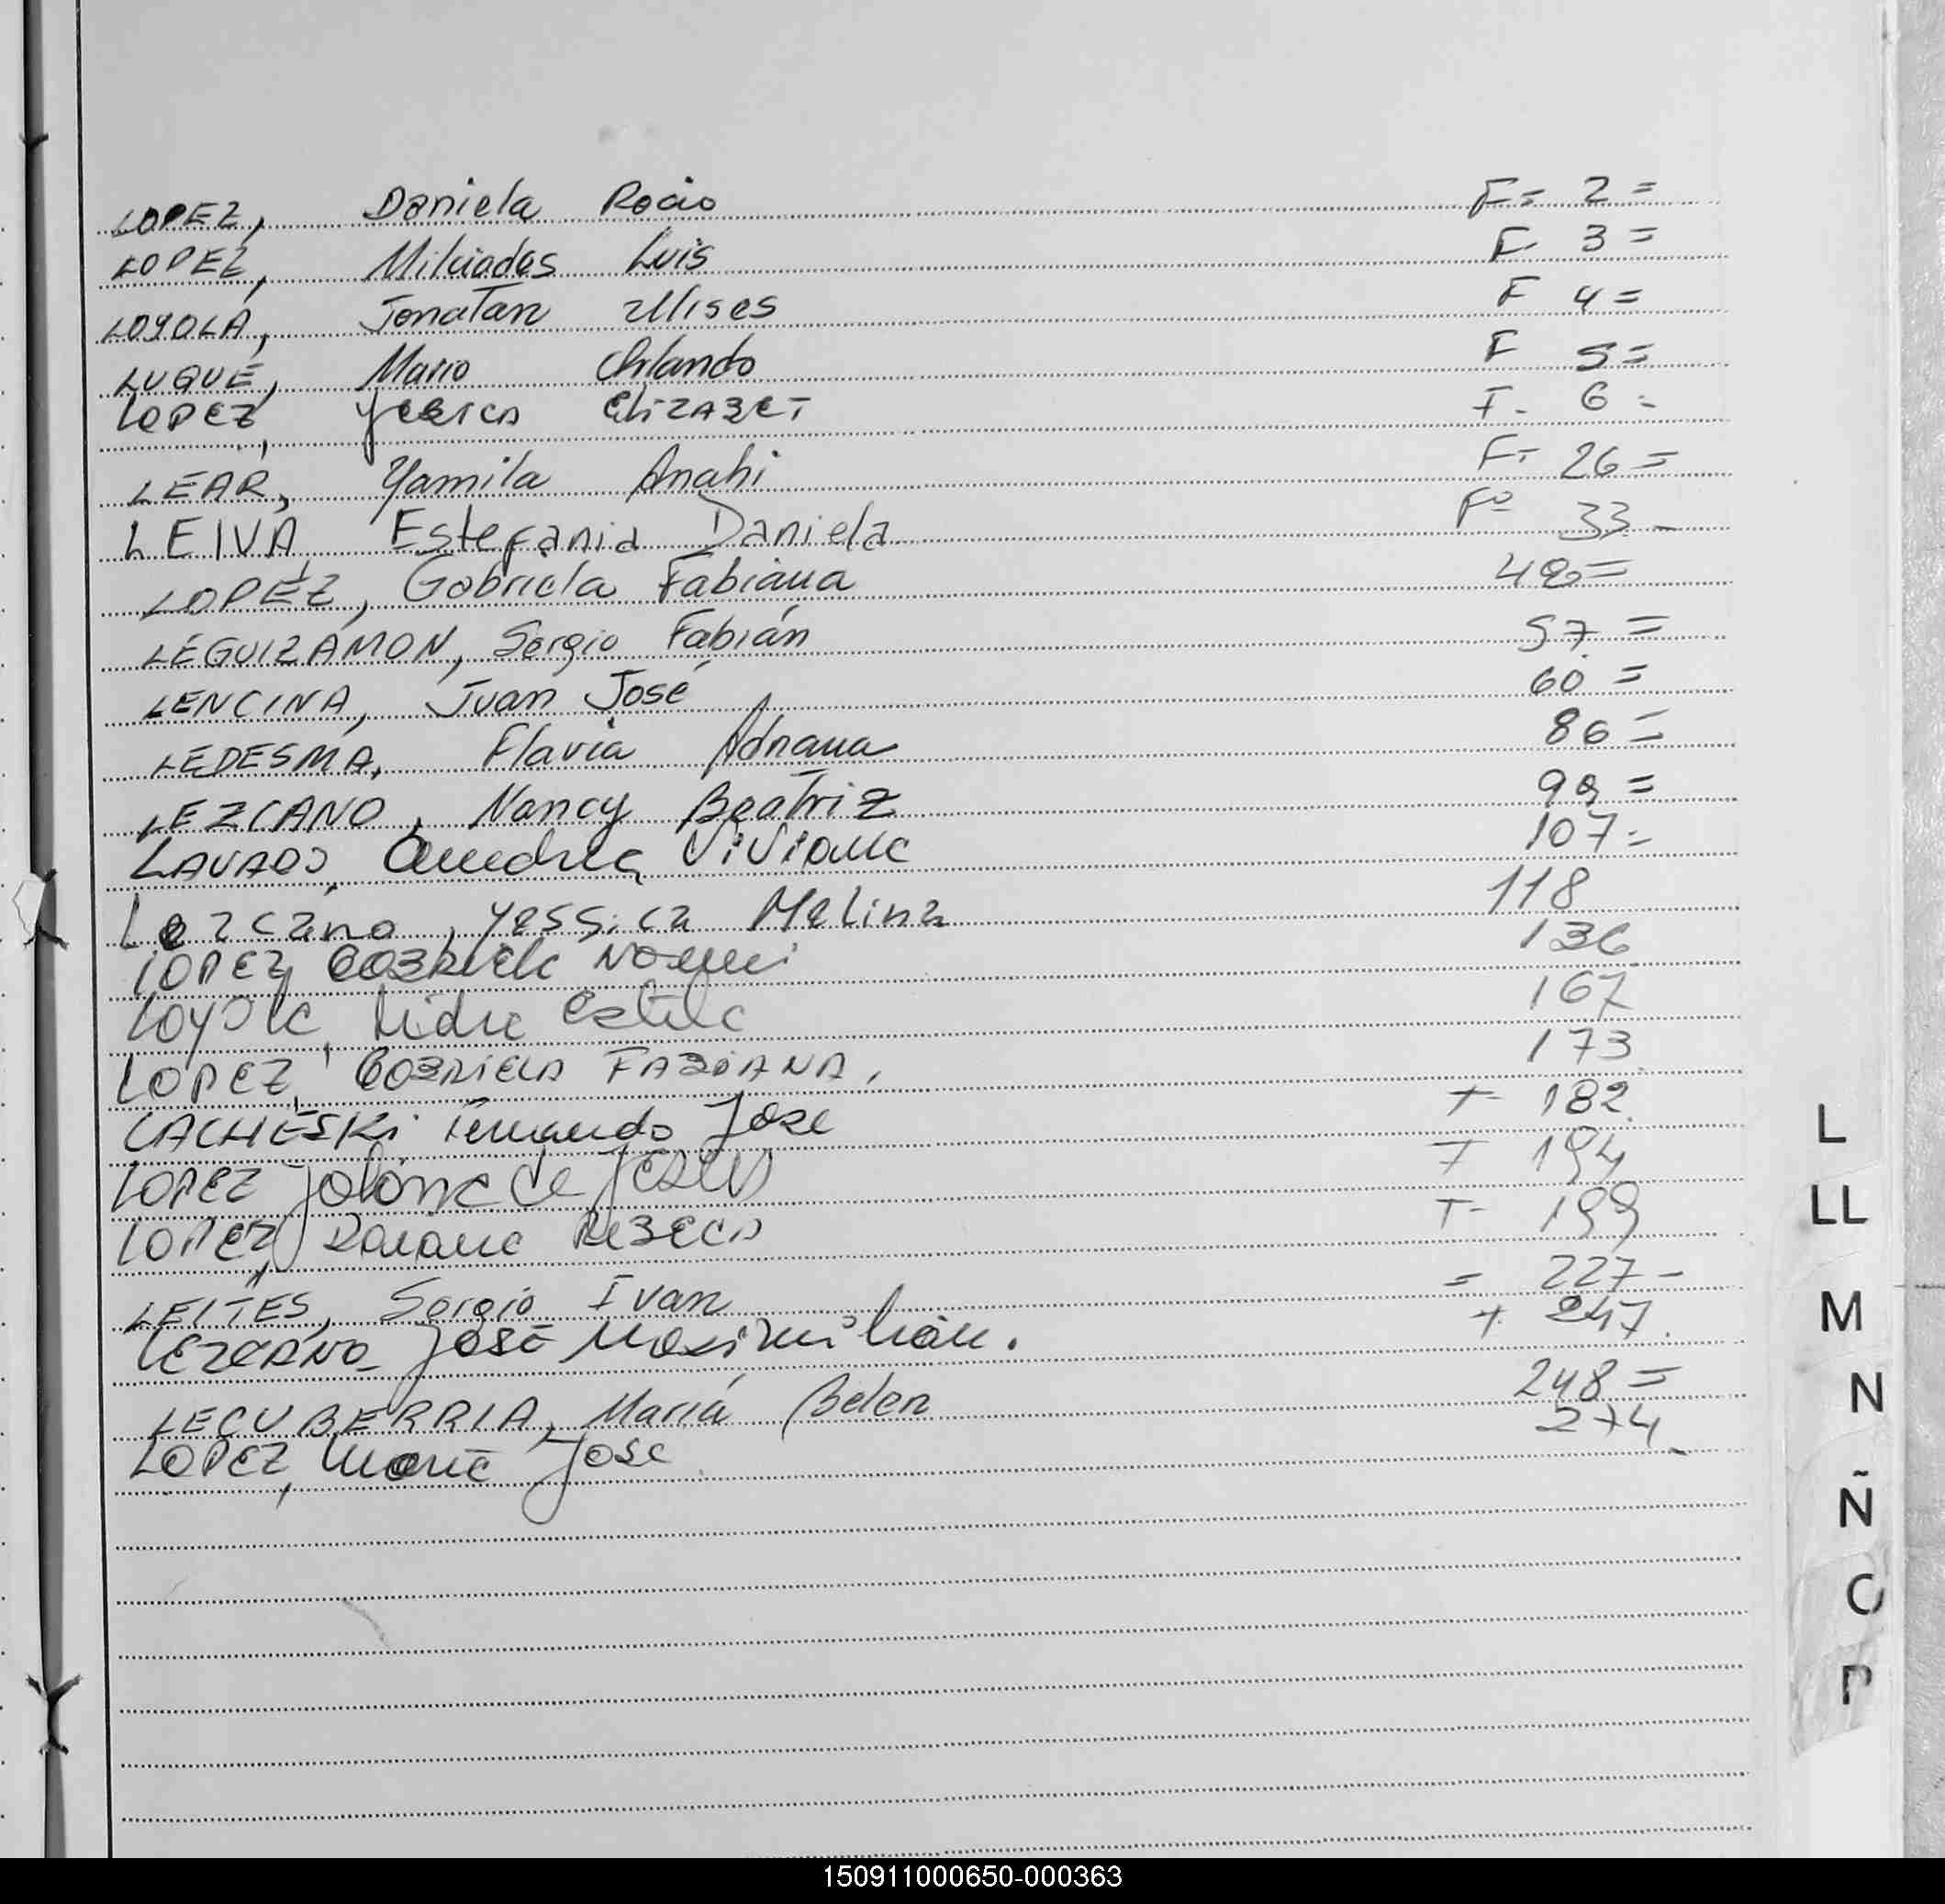 LOPEZ, Daniela Rocio F= 2=
LOPEZ, Milciades Luis F 3=
LOYOLA, Jonatan Ulises F 4=
LUQUE, Mario Orlando F 5=
LOPEZ, Yesica Elizabet F- 6-
LEAR, Yamila Anahi F- 26=
LEIVA Estefania Daniela Fº 33-
LOPEZ, Gabriela Fabiana =
LEGUIZAMON, Sergio Fabián 57=
LENCINA, Juan José 60=
LEDESMA, Flavia Adriana 86=
LEZCANO, Nancy Beatriz =
Viviana 107=
Lezcano, Yessica Melina 118
LOPEZ, Gabriela Noemi 136
Loyola, Lidia Estela 167
LOPEZ, Gabriela FABIANA, 173
LACHESKi Fernando Jose 182
LOPEZ de Jesus 194
LOPEZ, Rebeca 199
LEITES, Sergio Ivan = 227-
LEZCANO José Maximilian. 247
LECUBERRIA, María Belen 248=
LOPEZ, Maria Jose 274-
L
LL
M
N
Ñ
O
P
150911000650-000363